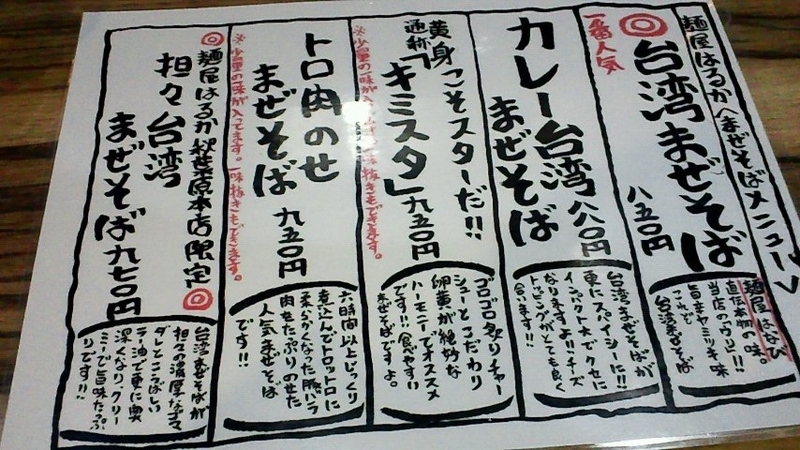 麺屋はるか〈まぜそばメニュー〉
一番人気
台湾まぜそば
八五〇円
麺屋はなび
直伝本物の味。
当店のウリ!!
旨辛ヤミツキ味
台湾まぜそば
カレー台湾
まぜそば
八八〇円
台湾まぜそばが
更にスパイシーに!!
インパクト大でクセに
なりますよ!!チーズ
トッピングがとても良く
合います!!
黄身こそスターだ!!
通称「キミスタ」
九五〇円
※少量の一味が入ってます。一味抜きもできます。
ゴロゴロ炙りチャー
シューとこだわり
卵黄が絶妙な
ハーモニーでオススメ
です!!食べやすい
まぜそばですよ。
トロ肉のせ
まぜそば
九五〇円
※少量の一味が入ってます。一味抜きもできます。
六時間以上じっくり
煮込んでトロットロに
柔らかくなった豚バラ
肉をたっぷりのせた
人気まぜそば
です!!
麺屋はるか秋葉原本店限定
担々台湾
まぜそば
九七〇円
台湾まぜそばが
担々の濃厚なゴマ
ダレとこうばしい
ラー油で更に奥
深くなり、クリー
ミーで旨味たっぷ
りです!!